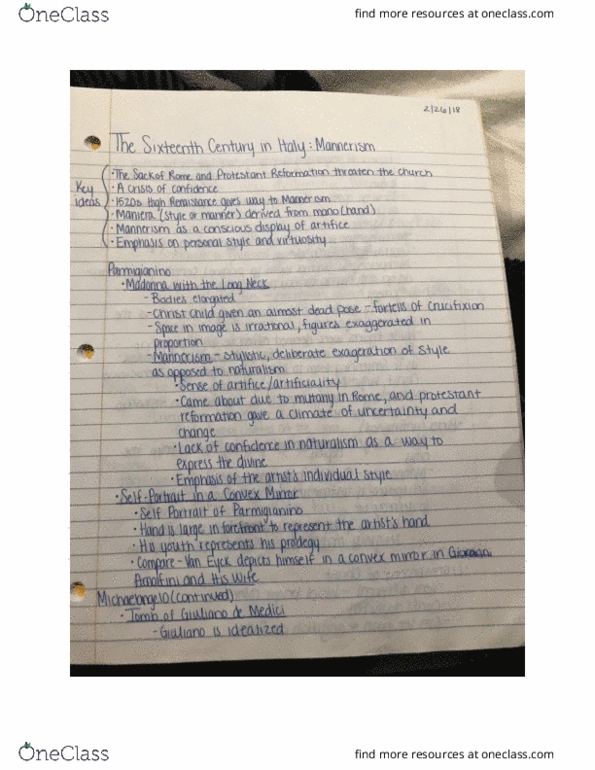 OneClass
find more resources at oneclass.com
2/26/18
The Sixteenth Century in Italy: Mannerism
Key Ideas
• The Sack of Rome and Protestant Reformation threaten the church
• A crisis of confidence
• 1520s High Renaissance gives way to Mannerism
• Maniera (style or manner) derived from mano (hand)
• Mannerism as a conscious display of artifice
• Emphasis on personal style and virtuosity
Parmigianino
• Madonna with the Long Neck
- Bodies elongated
- Christ child given an almost dead pose - fortells of crucifixion
- Space in image is irrational, figures exaggerated in
proportion
- Mannerism - stylistic, deliberate exageration of style
as opposed to naturalism
• Sense of artifice/artificiality
• Came about due to mutany in Rome, and protestant
reformation gave a climate of uncertainty and
change
• Lack of confidence in naturalism as a way to
express the divine
• Emphasis of the artist's individual style
• Self-Portrait in a Convex Mirror
• Self Portrait of Parmigianino
• Hand is large in forefront to represent the artist's hand
• His youth represents his prodegy
• Compare - Van Eyck depicts himself in a convex mirror in
Arnolfini and His Wife
Michaelangelo (continued)
• Tomb of Giuliano de Medici
- Giuliano is idealized
OneClass
find more resources at oneclass.com